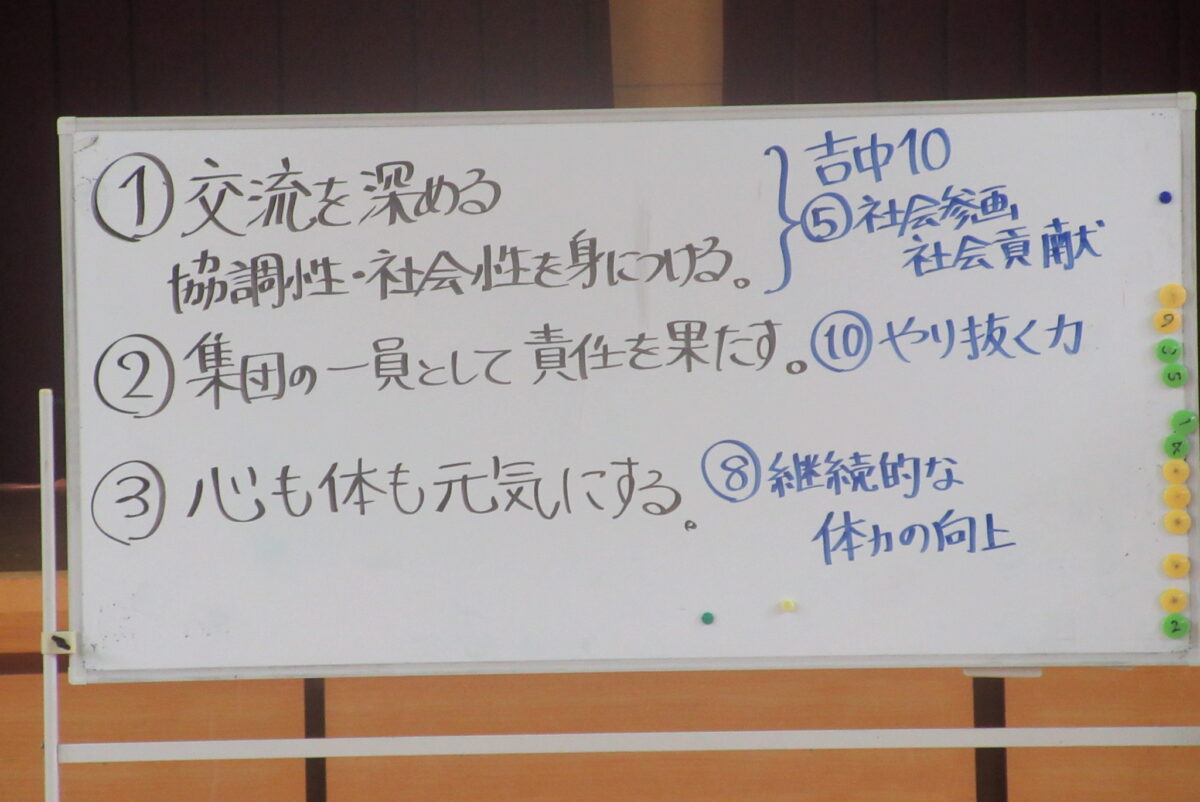 ① 交流を深める
協調性・社会性を身につける。
吉中10
⑤ 社会参画
社会貢献
② 集団の一員として責任を果たす。 ⑩ やり抜く力
③ 心も体も元気にする。 ⑧ 継続的な
体力の向上
2